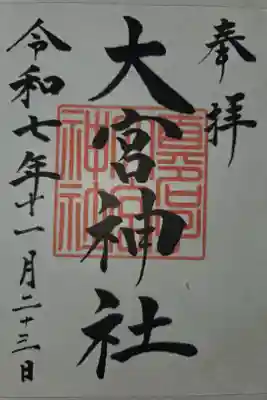 奉拝
大宮神社
令和七年十一月二十三日